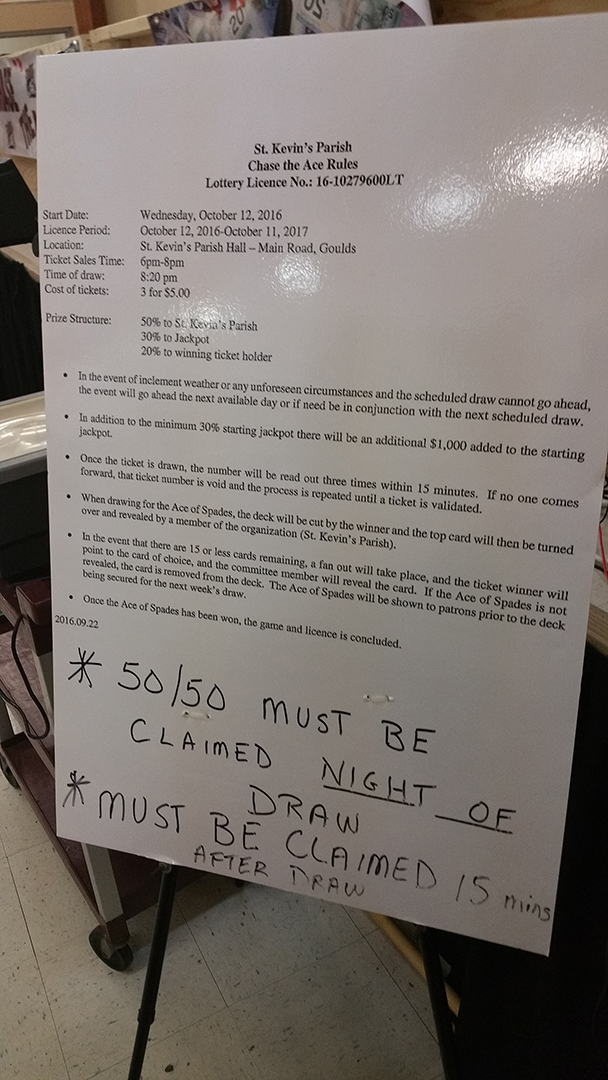 St. Kevin's Parish
Chase the Ace Rules
Lottery Licence No.: 16-10279600LT
Start Date: Wednesday, October 12, 2016
Licence Period: October 12, 2016-October 11, 2017
Location: St. Kevin's Parish Hall – Main Road, Goulds
Ticket Sales Time: 6pm-8pm
Time of draw: 8:20 pm
Cost of tickets: 3 for $5.00
Prize Structure: 50% to St. Kevin's Parish
30% to Jackpot
20% to winning ticket holder
• In the event of inclement weather or any unforeseen circumstances and the scheduled draw cannot go ahead,
the event will go ahead the next available day or if need be in conjunction with the next scheduled draw.
• In addition to the minimum 30% starting jackpot there will be an additional $1,000 added to the starting
jackpot.
• Once the ticket is drawn, the number will be read out three times within 15 minutes. If no one comes
forward, that ticket number is void and the process is repeated until a ticket is validated.
• When drawing for the Ace of Spades, the deck will be cut by the winner and the top card will then be turned
over and revealed by a member of the organization (St. Kevin's Parish).
• In the event that there are 15 or less cards remaining, a fan out will take place, and the ticket winner will
point to the card of choice, and the committee member will reveal the card. If the Ace of Spades is not
revealed, the card is removed from the deck. The Ace of Spades will be shown to patrons prior to the deck
being secured for the next week's draw.
• Once the Ace of Spades has been won, the game and licence is concluded.
2016.09.22
* 50/50 MUST BE
CLAIMED NIGHT OF
DRAW
* MUST BE CLAIMED 15 mins
AFTER DRAW
20